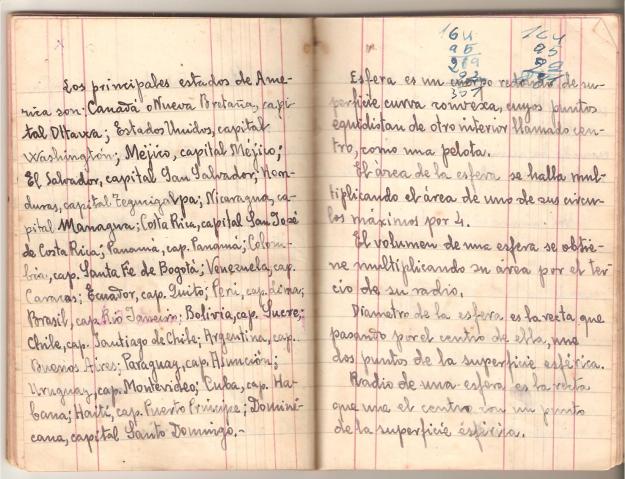 Los principales estados de Ame-
rica son: Canadá o Nueva Bretaña, capi-
tal Ottawa; Estados Unidos, capital
Washington; Méjico, capital Méjico;
El Salvador, capital San Salvador; Hon-
duras, capital Tegucigalpa; Nicaragua, ca-
pital Managua; Costa Rica, capital San José
de Costa Rica; Panamá, cap. Panamá; Colom-
bia, cap. Santa Fe de Bogotá; Venezuela, cap.
Caracas; Ecuador, cap. Quito; Perú, cap. Lima;
Brasil, cap. Rio Janeiro; Bolivia, cap. Sucre;
Chile, cap. Santiago de Chile; Argentina, cap.
Buenos Aires; Paraguay, cap. Asunción;
Uruguay, cap. Montevideo; Cuba, cap. Ha-
bana; Haití, cap. Puerto Príncipe; Domini-
cana, capital Santo Domingo.-
164
95
219
301
164
95
Esfera es un cuerpo redondo de su-
perficie curva convexa, cuyos puntos
equidistan de otro interior llamado cen-
tro, como una pelota.
El área de la esfera se halla mul-
tiplicando el área de uno de sus circu-
los máximos por 4.
El volumen de una esfera se obtie-
ne multiplicando su área por el ter-
cio de su radio.
Diámetro de la esfera es la recta que
pasando por el centro de ella, une
dos puntos de la superficie esférica.
Radio de una esfera es la recta
que une el centro con un punto
de la superficie esférica.